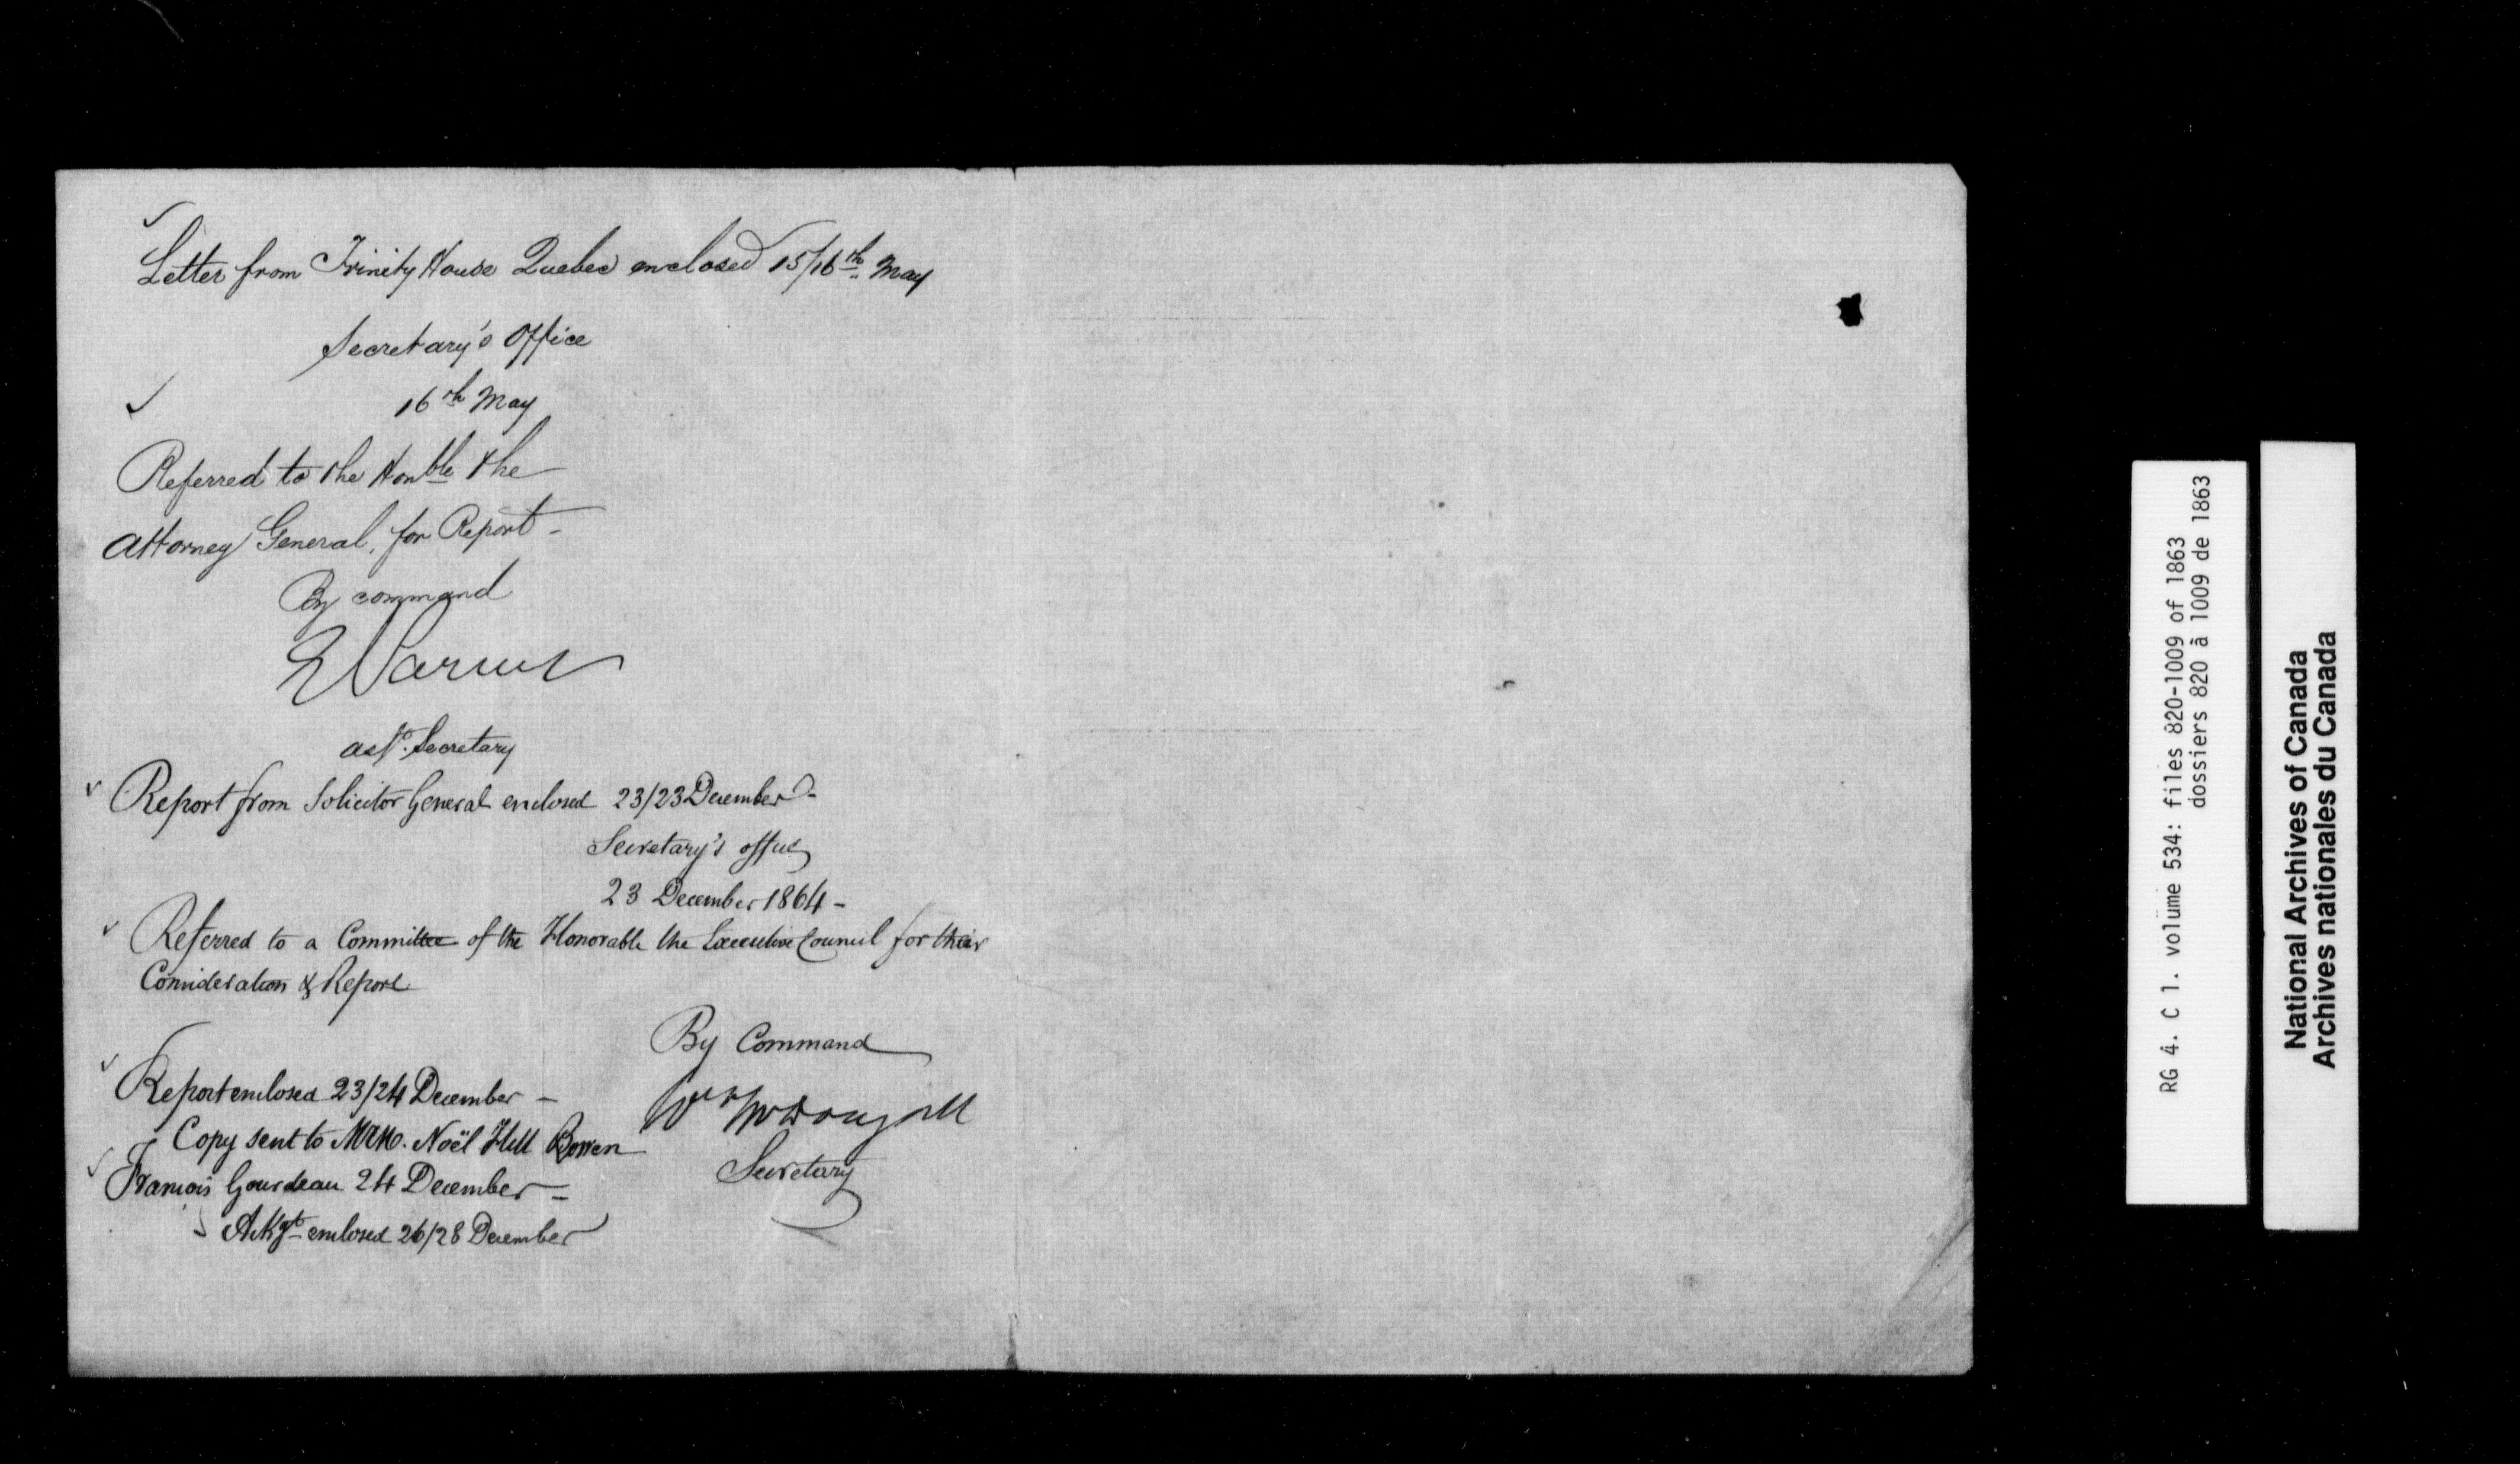 Letter from Trinity House Quebec enclosed 15/16th May
Secretary's Office
16th May
Referred to the Honble the
Attorney General, for Report -
By command
Asst. Secretary
Report from Solicitor General enclosed 23/23 December -
Secretary's office
23 December 1864 -
Referred to a Committee of the Honorable the Executive Council for their
Consideration & Report
By Command
Wm McDougall
Secretary
Report enclosed 23/24 December -
Copy sent to Noël Hill Bowen
François Gourdeau 24 December -
Ackgt enclosed 26/28 December
RG 4. C 1. volume 534: files 820-1009 of 1863
dossiers 820 à 1009 de 1863
National Archives of Canada
Archives nationales du Canada